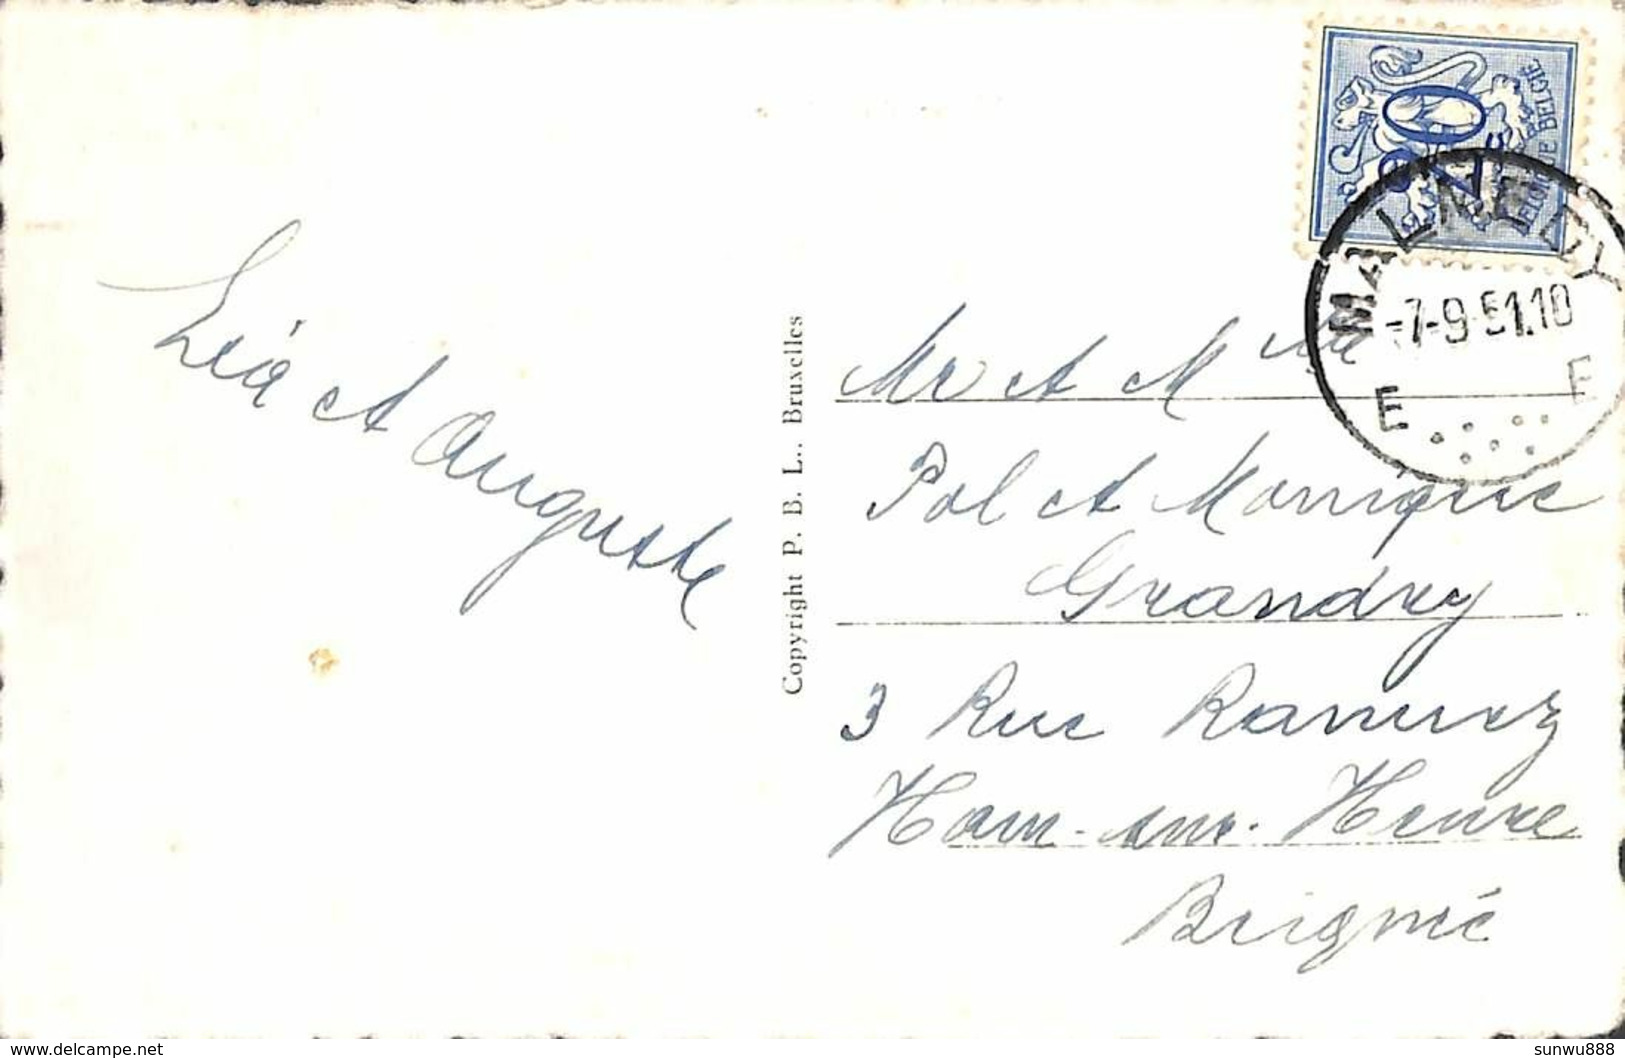 BELGIQUE BELGIË
20c
MALMEDY
-7-9-51.10
E E
Léa et Auguste
Copyright P. B. L., Bruxelles
Mr et Mme
Pol et Monique
Grandry
3 Rue
Ham-sur-Heure
www.delcampe.net
sunwu888